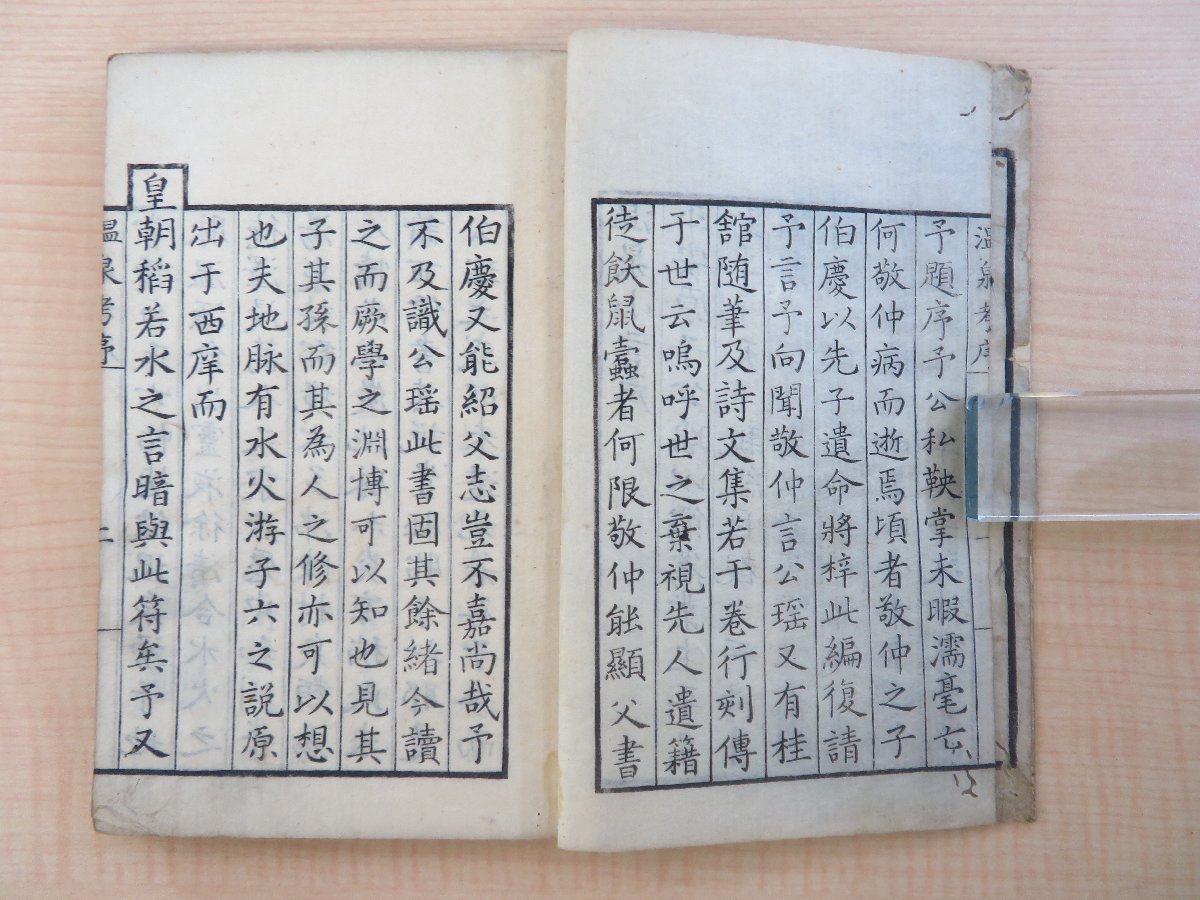 温泉考序
予題序予公私鞅掌未暇濡毫亡
何敬仲病而逝焉頃者敬仲之子
伯慶以先子遺命將梓此編復請
予言予向聞敬仲言公瑶又有桂
舘随筆及詩文集若干卷行刻傳
于世云嗚呼世之棄視先人遺籍
徒飫鼠蠹者何限敬仲能顯父書
伯慶又能紹父志豈不嘉尚哉予
不及識公瑶此書固其餘緒今讀
之而蕨學之淵博可以知也見其
子其孫而其為人之修亦可以想
也夫地脉有水火游子六之説原
出于西庠而
皇朝稻若水之言暗與此符矣予又
温泉考序
二